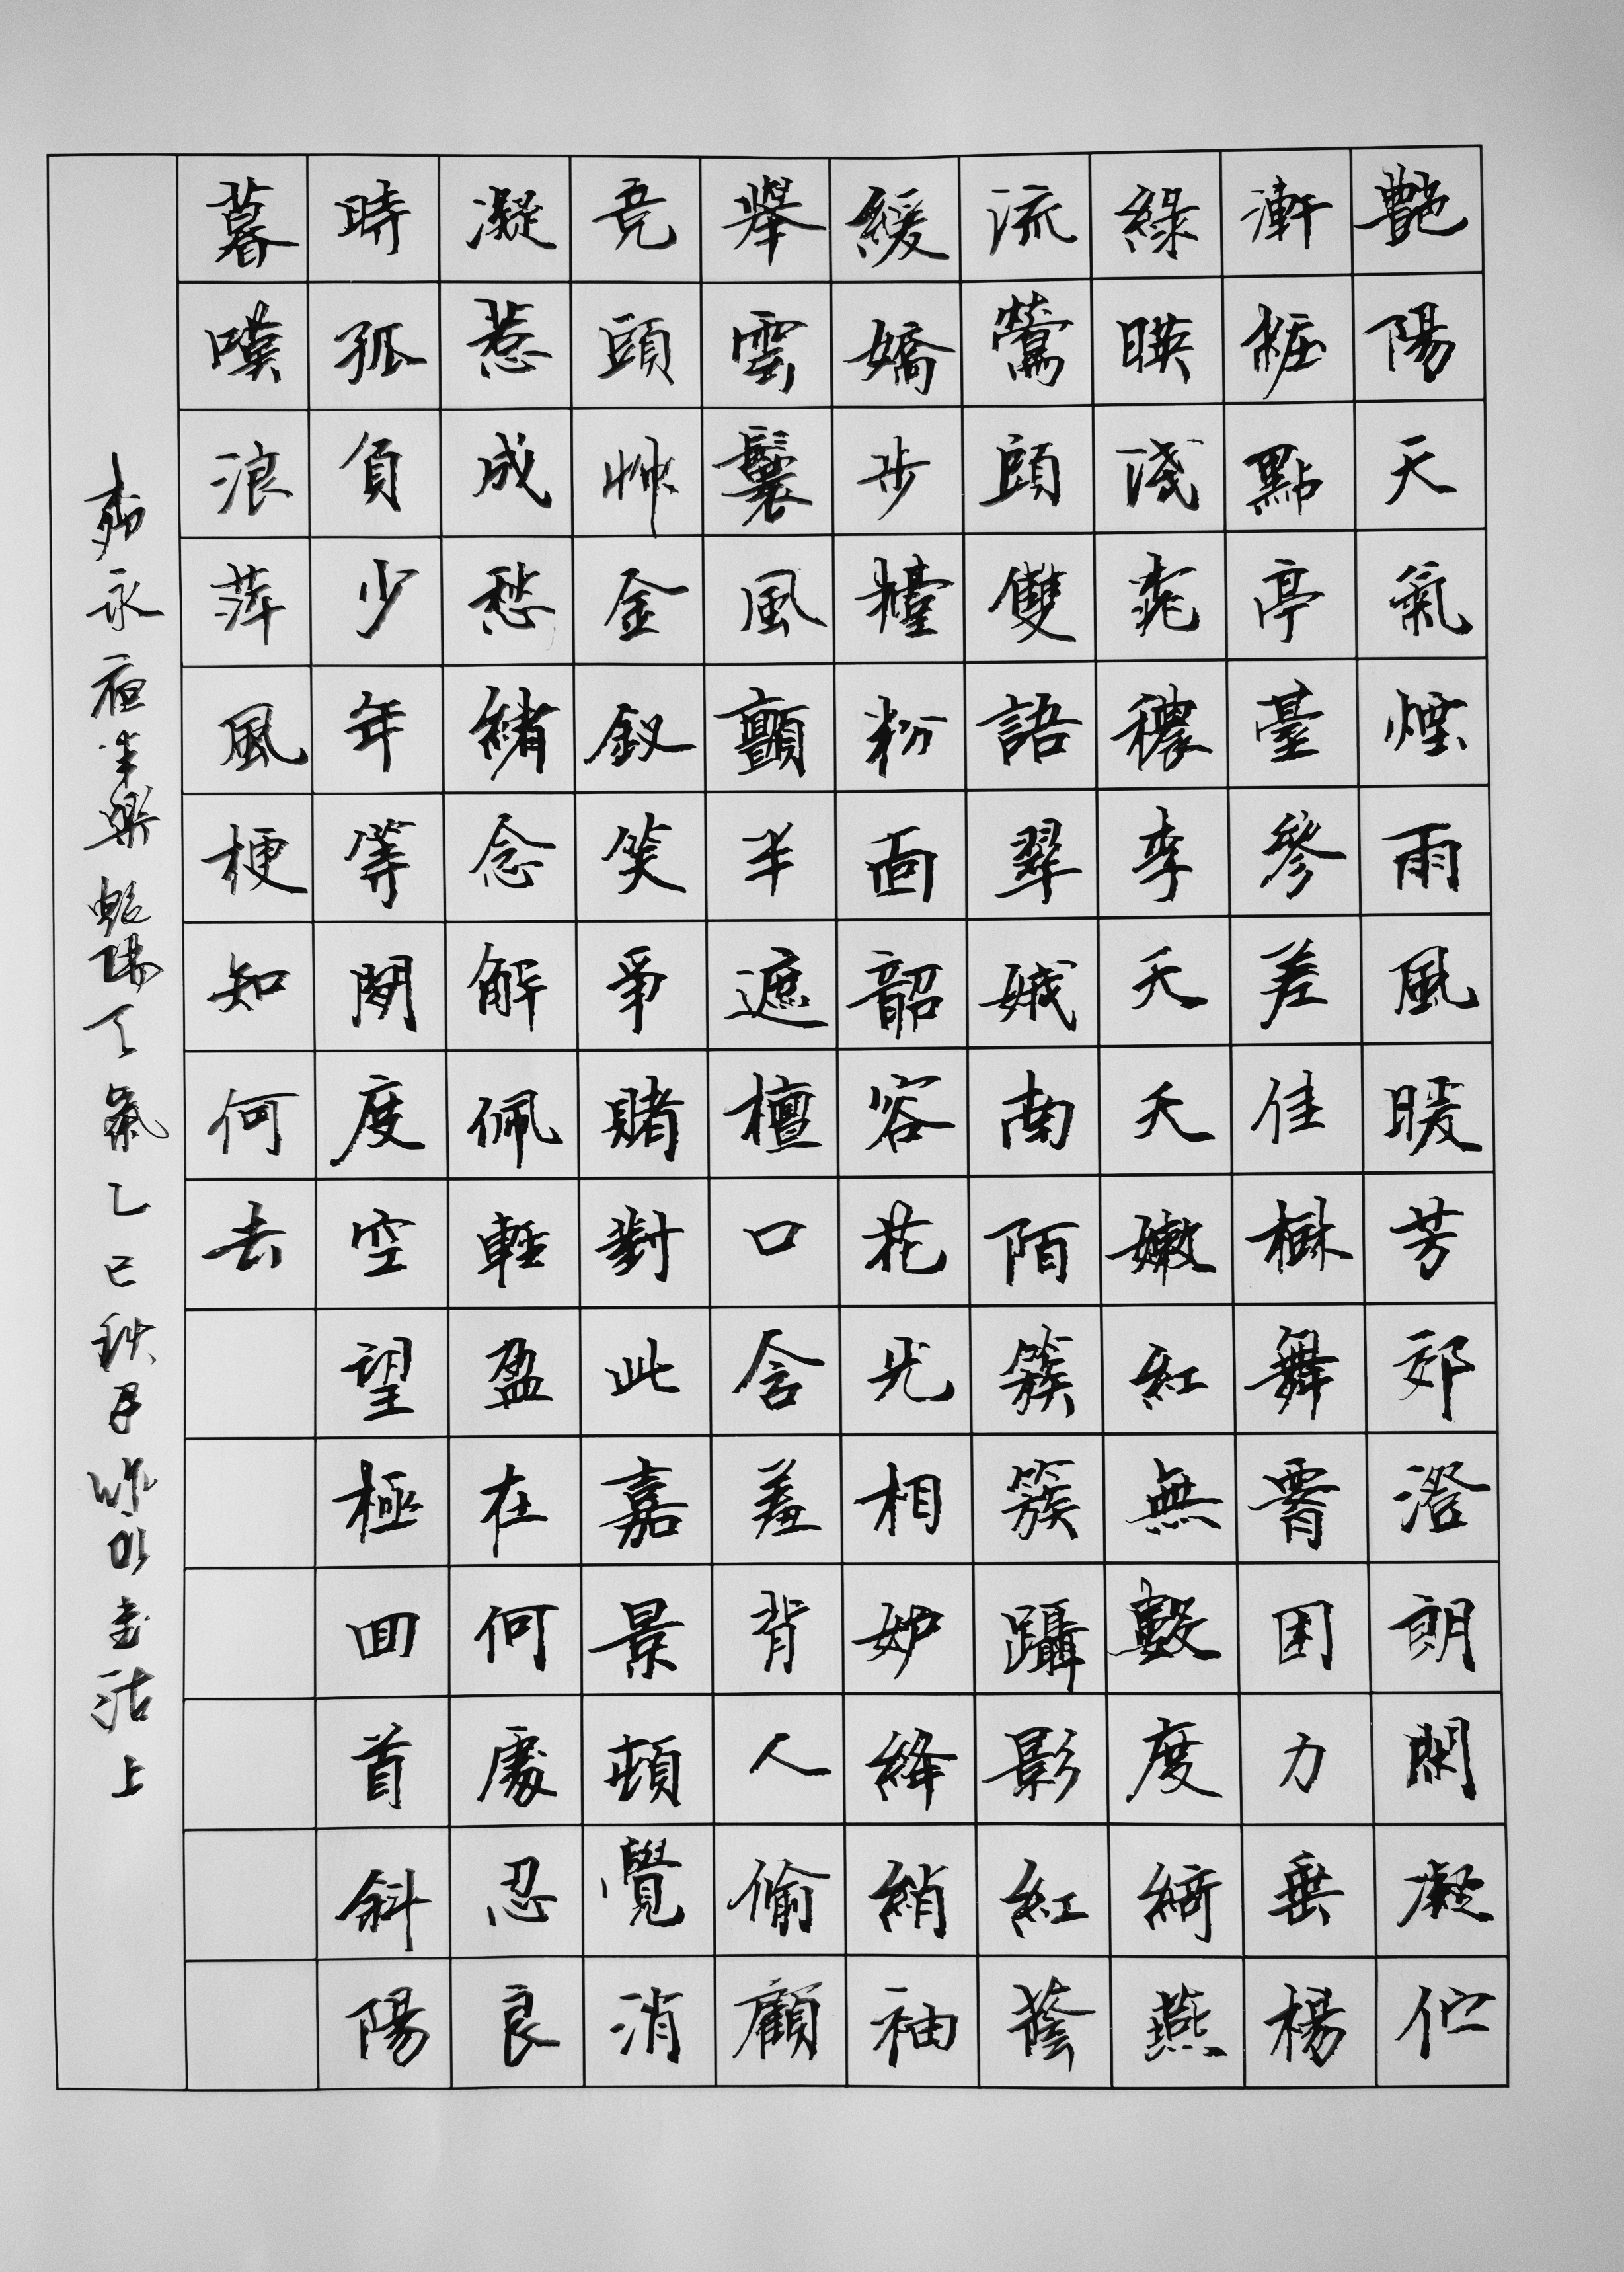 艷陽天氣煙雨風暖芳郊澄朗閑凝佇
漸粧點亭臺參差佳樹舞腰困力垂楊
綠暎淺桃穠李夭夭嫩紅無數度綺燕
流鶯鬥雙語翠娥南陌簇簇躡影紅蔭
緩嬌步擡粉面韶容花光相妒絳綃袖
舉雲鬟風顫半遮檀口含羞背人偷顧
競鬥草金釵笑爭賭對此嘉景頓覺消
凝惹成愁緒念解佩輕盈在何處忍良
時孤負少年等閑度空望極回首斜陽
暮嘆浪萍風梗知何去
柳永夜半樂艷陽天氣乙巳秋月書沽上